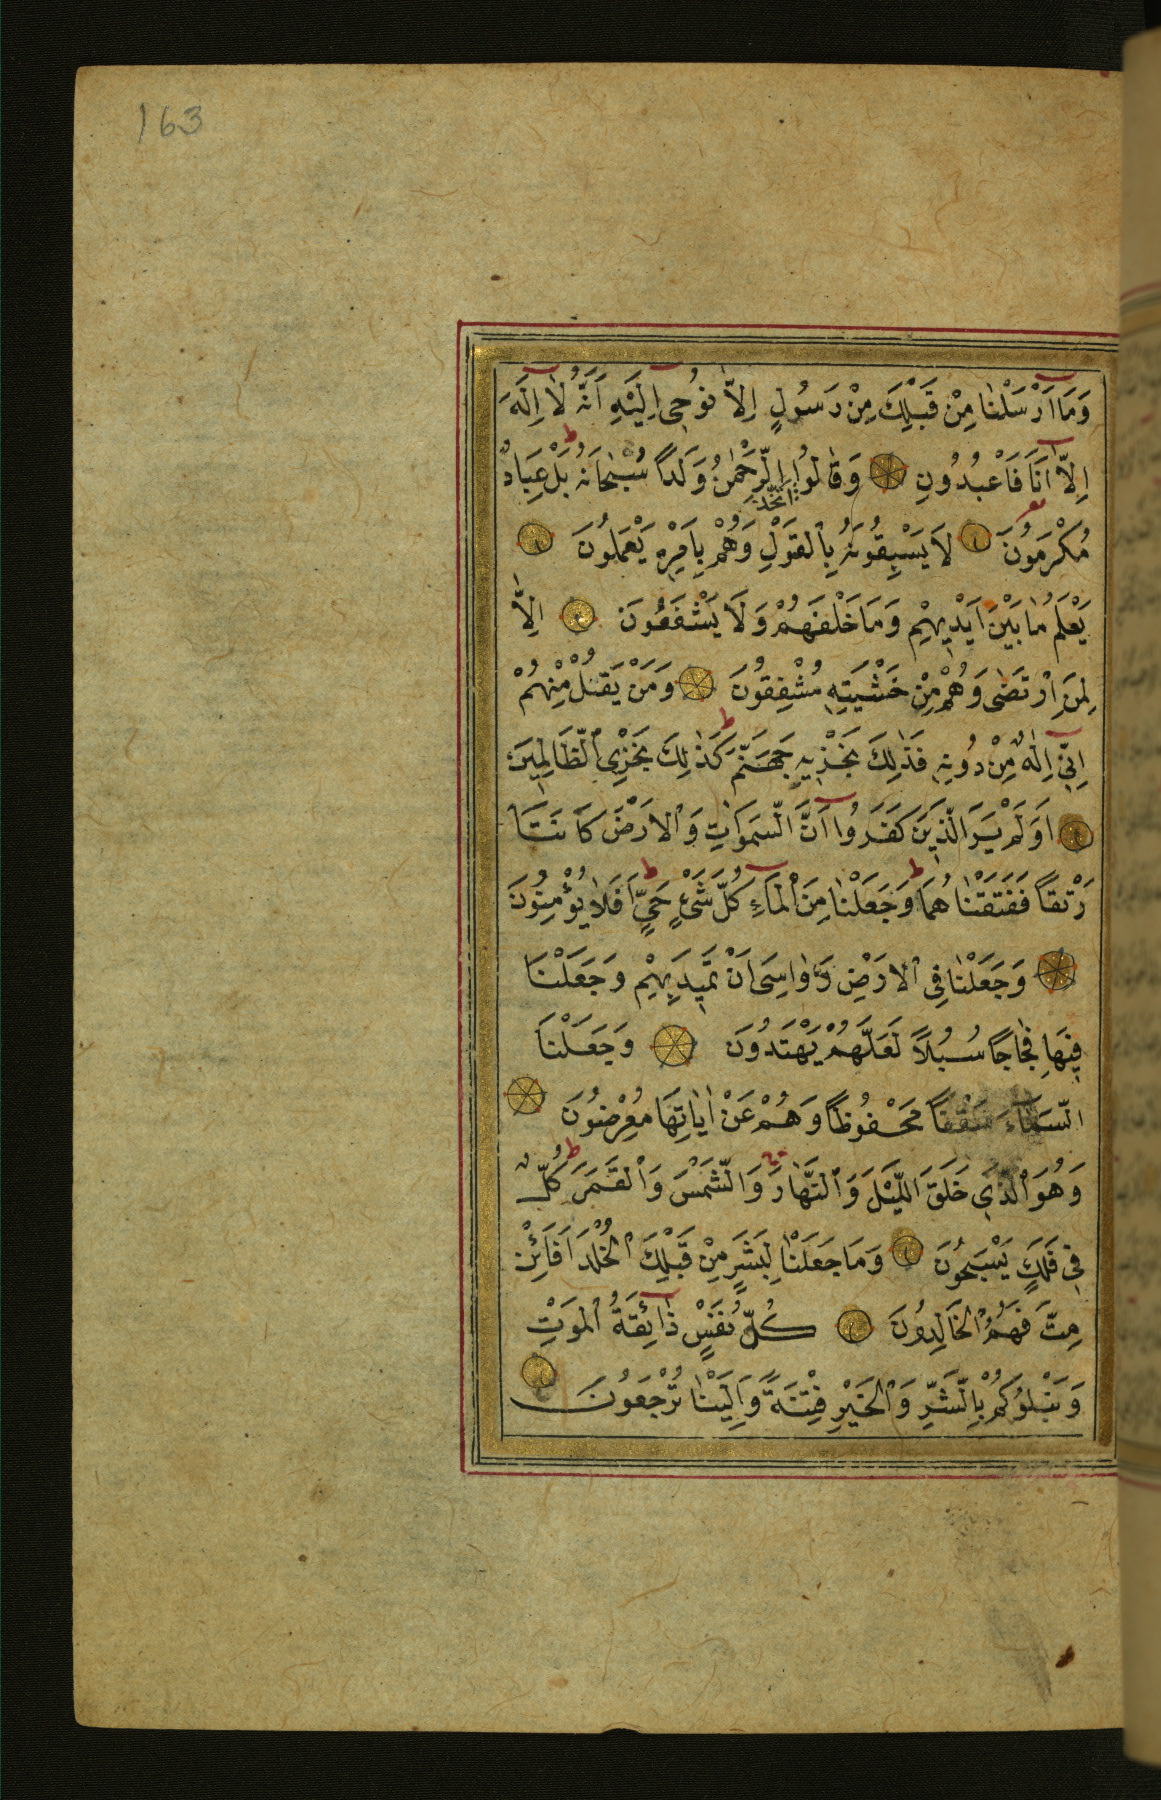 163
وَمَا اَرْسَلْنَا مِنْ قَبْلِكَ مِنْ رَسُولٍ اِلَّا نُوحِى اِلَيْهِ اَنَّهُ لَا اِلٰهَ
اِلَّا اَنَا فَاعْبُدُونِ وَقَالُوا اتَّخَذَ الرَّحْمٰنُ وَلَدًا سُبْحَانَهُ بَلْ عِبَادٌ
مُكْرَمُونَ لَا يَسْبِقُونَهُ بِالْقَوْلِ وَهُمْ بِاَمْرِهِ يَعْمَلُونَ
يَعْلَمُ مَا بَيْنَ اَيْدِيهِمْ وَمَا خَلْفَهُمْ وَلَا يَشْفَعُونَ اِلَّا
لِمَنِ ارْتَضٰى وَهُمْ مِنْ خَشْيَتِهِ مُشْفِقُونَ وَمَنْ يَقُلْ مِنْهُمْ
اِنِّى اِلٰهٌ مِنْ دُونِهِ فَذٰلِكَ نَجْزِيهِ جَهَنَّمَ كَذٰلِكَ نَجْزِى الظَّالِمِينَ
اَوَلَمْ يَرَ الَّذِينَ كَفَرُوا اَنَّ السَّمٰوَاتِ وَالْاَرْضَ كَانَتَا
رَتْقًا فَفَتَقْنَاهُمَا وَجَعَلْنَا مِنَ الْمَاءِ كُلَّ شَىْءٍ حَىٍّ اَفَلَا يُؤْمِنُونَ
وَجَعَلْنَا فِى الْاَرْضِ رَوَاسِىَ اَنْ تَمِيدَ بِهِمْ وَجَعَلْنَا
فِيهَا فِجَاجًا سُبُلًا لَعَلَّهُمْ يَهْتَدُونَ وَجَعَلْنَا
السَّمَاءَ سَقْفًا مَحْفُوظًا وَهُمْ عَنْ اٰيَاتِهَا مُعْرِضُونَ
وَهُوَ الَّذِى خَلَقَ اللَّيْلَ وَالنَّهَارَ وَالشَّمْسَ وَالْقَمَرَ كُلٌّ
فِى فَلَكٍ يَسْبَحُونَ وَمَا جَعَلْنَا لِبَشَرٍ مِنْ قَبْلِكَ الْخُلْدَ اَفَائِنْ
مِتَّ فَهُمُ الْخَالِدُونَ كُلُّ نَفْسٍ ذَائِقَةُ الْمَوْتِ
وَنَبْلُوكُمْ بِالشَّرِّ وَالْخَيْرِ فِتْنَةً وَاِلَيْنَا تُرْجَعُونَ